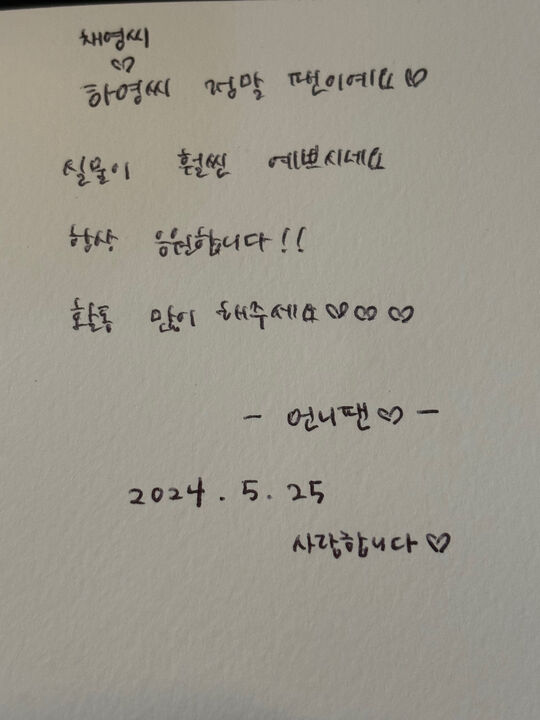 채영씨
♡
하영씨 정말 팬이에요♡
실물이 훨씬 예쁘시네요
항상 응원합니다!!
활동 많이 해주세요♡♡♡
- 언니팬♡ -
2024.5.25
사랑합니다♡